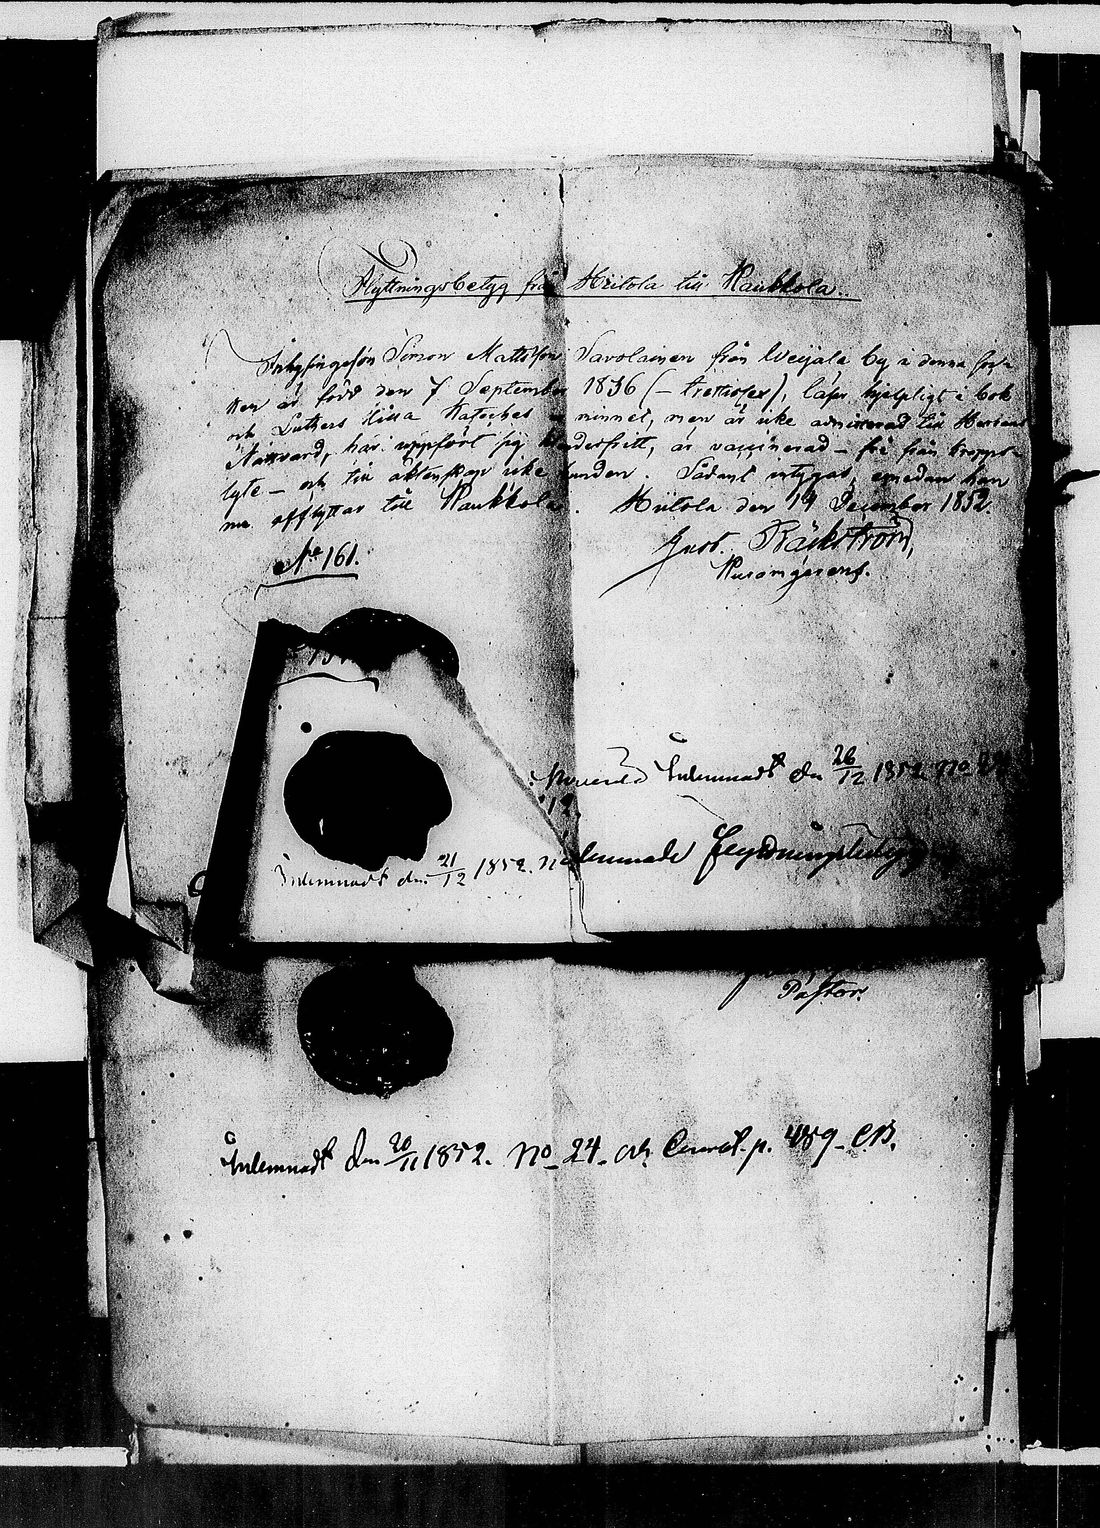 Flyttningsbetyg från Hiitola till Kaukkola.
Inhysingeson Simon Mattsson Savolainen från Weijala by i denna för-
är född den 7 September 1836 (– trettiosex), läser hjelpligt i bok
och Luthers lilla Kateches minnet, men är icke admitterad till Herrans
Nattvard, har uppfört sig klanderfritt, är vaccinerad – fri från kropps-
lyte – och till äktenskap icke bunden. Sådant intygas, emedan han
nu afflyttar till Kaukkola. Hiitola den 19 December 1852.
No 161.
Gust. Bäckström,
Inlemnadt den 26/12 1852 No
Inlemnadt den 21/12 1852. No
Pastor.
Inlemnadt den 20/11 1852. No 24. och p. 489. CB.